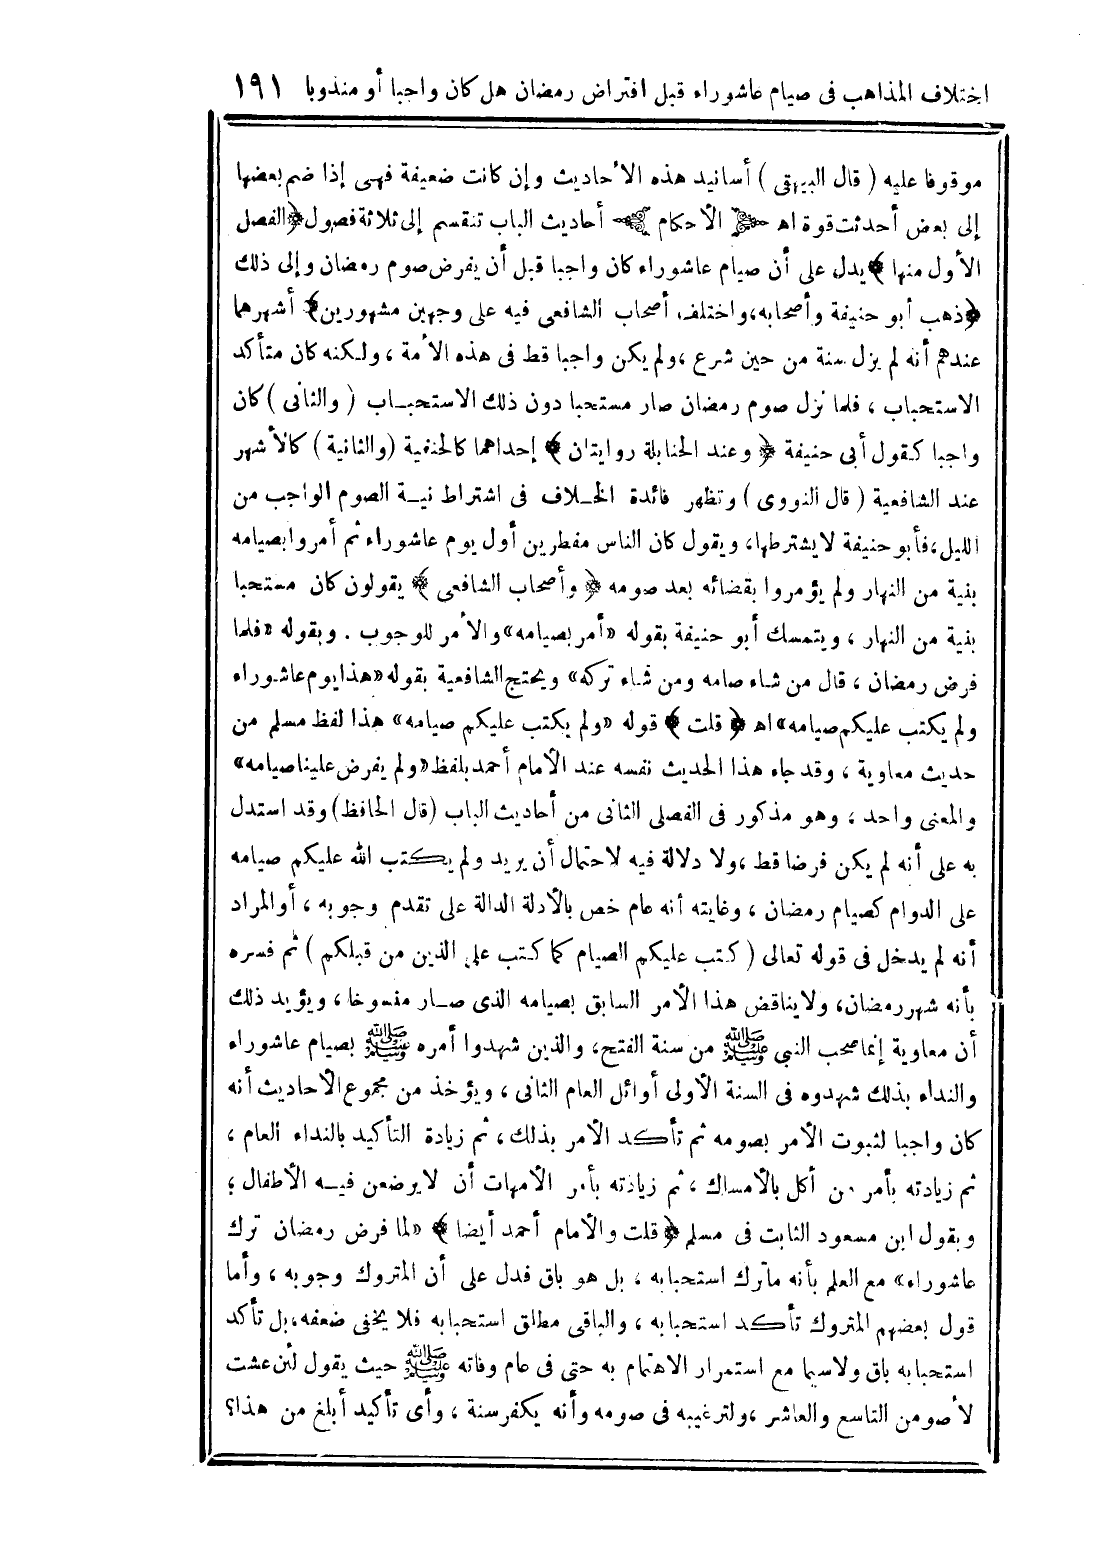 اختلاف المذاهب فى صيام عاشوراء قبل افتراض رمضان هل كان واجبا أو مندوبا ١٩١
موقوفا عليه ( قال البيهقى ) أسانيد هذه الأحاديث وإن كانت ضعيفة فهى إذا ضم بعضها
إلى بعض أحدثت قوة اه الأحكام أحاديث الباب تنقسم إلى ثلاثة فصول ﴿ الفصل
الأول منها ﴾ يدل على أن صيام عاشوراء كان واجبا قبل أن يفرض صوم رمضان وإلى ذلك
﴿ ذهب أبو حنيفة وأصحابه، واختلف أصحاب الشافعى فيه على وجهين مشهورين ﴾ أشهرهما
عندهم أنه لم يزل سنة من حين شرع ، ولم يكن واجبا قط فى هذه الأمة ، ولكنه كان متأكد
الاستحباب ، فلما نزل صوم رمضان صار مستحبا دون ذلك الاستحباب ( والثانى ) كان
واجبا كقول أبى حنيفة ﴿ وعند الحنابلة روايتان ﴾ إحداهما كالحنفية (والثانية ) كالأشهر
عند الشافعية ( قال النووى ) وتظهر فائدة الخلاف فى اشتراط نية الصوم الواجب من
الليل ، فأبو حنيفة لا يشترطها، ويقول كان الناس مفطرين أول يوم عاشوراء ثم أمروا بصيامه
بنية من النهار ولم يؤمروا بقضائه بعد صومه ﴿ وأصحاب الشافعى ﴾ يقولون كان مستحبا
بنية من النهار ، ويتمسك أبو حنيفة بقوله «أمر بصيامه» والأمر للوجوب . وبقوله «فلما
فرض رمضان ، قال من شاء صامه ومن شاء تركه» ويحتج الشافعية بقوله «هذا يوم عاشوراء
ولم يكتب عليكم صيامه» اه ﴿ قلت ﴾ قوله «ولم يكتب عليكم صيامه» هذا لفظ مسلم من
حديث معاوية ، وقد جاء هذا الحديث نفسه عند الأمام أحمد بلفظ «ولم يفرض علينا صيامه»
والمعنى واحد ، وهو مذكور فى الفصل الثانى من أحاديث الباب (قال الحافظ) وقد استدل
به على أنه لم يكن فرضا قط ، ولا دلالة فيه لاحتمال أن يريد ولم يكتب الله عليكم صيامه
على الدوام كصيام رمضان ، وغايته أنه عام خص بالأدلة الدالة على تقدم وجوبه ، أو المراد
أنه لم يدخل فى قوله تعالى ( كتب عليكم الصيام كما كتب على الذين من قبلكم ) ثم فسره
بأنه شهر رمضان، ولا يناقض هذا الأمر السابق بصيامه الذى صار منسوخا ، ويؤيد ذلك
أن معاوية إنما صحب النبي ﷺ من سنة الفتح، والذين شهدوا أمره ﷺ بصيام عاشوراء
والنداء بذلك شهدوه فى السنة الأولى أوائل العام الثانى ، ويؤخذ من مجموع الأحاديث أنه
كان واجبا لثبوت الأمر بصومه ثم تأكد الأمر بذلك ، ثم زيادة التأكيد بالنداء العام ،
ثم زيادته بأمر من أكل بالأمساك ، ثم زيادته بأمر الأمهات أن لا يرضعن فيه الأطفال ؛
وبقول ابن مسعود الثابت فى مسلم ﴿ قلت والأمام أحمد أيضا ﴾ «لما فرض رمضان ترك
عاشوراء» مع العلم بأنه ماترك استحبابه ، بل هو باق فدل على أن المتروك وجوبه ، وأما
قول بعضهم المتروك تأكد استحبابه ، والباقى مطلق استحبابه فلا يخفى ضعفه، بل تأكد
استحبابه باق ولاسيما مع استمرار الاهتمام به حتى فى عام وفاته ﷺ حيث يقول لئن عشت
لأصومن التاسع والعاشر ، ولترغيبه فى صومه وأنه يكفر سنة ، وأى تأكيد أبلغ من هذا؟